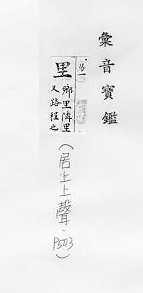 彙音寶鑑
里
鄉里隣里
又路程之
(居上上聲·P503)